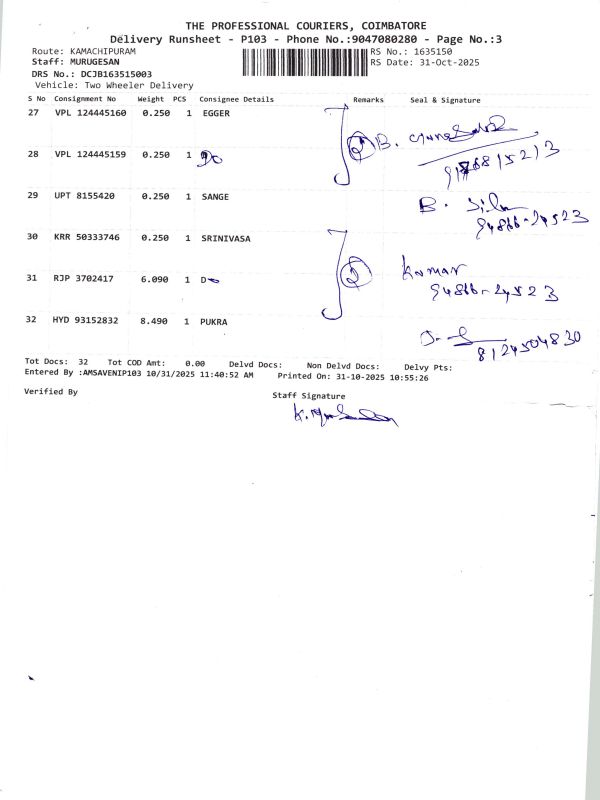 THE PROFESSIONAL COURIERS, COIMBATORE
Delivery Runsheet - P103 - Phone No.:9047080280 - Page No.:3
Route: KAMACHIPURAM RS No.: 1635150
Staff: MURUGESAN RS Date: 31-Oct-2025
DRS No.: DCJB163515003
Vehicle: Two Wheeler Delivery
S No Consignment No Weight PCS Consignee Details Remarks Seal & Signature
27 VPL 124445160 0.250 1 EGGER
B.
28 VPL 124445159 0.250 1 Do
29 UPT 8155420 0.250 1 SANGE B.
94866-24523
30 KRR 50333746 0.250 1 SRINIVASA
Kumar
31 RJP 3702417 6.090 1 Do 94866-24523
32 HYD 93152832 8.490 1 PUKRA
8124504830
Tot Docs: 32 Tot COD Amt: 0.00 Delvd Docs: Non Delvd Docs: Delvy Pts:
Entered By :AMSAVENIP103 10/31/2025 11:40:52 AM Printed On: 31-10-2025 10:55:26
Verified By Staff Signature